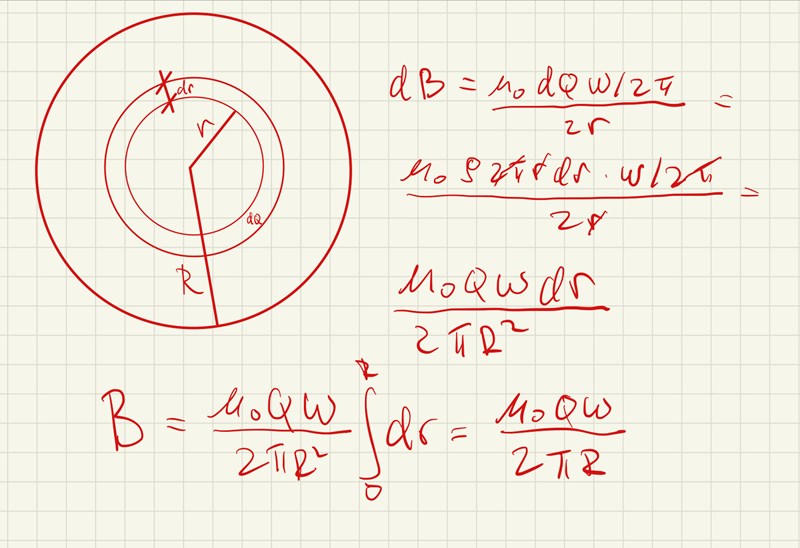 dr
r
dQ
R
dB = μ₀ dQ ω/2π / 2r =
μ₀ ρ 2π r dr · ω/2π / 2r =
μ₀Qω dr / 2πR²
B = μ₀Qω / 2πR² ∫₀ᴿ dr = μ₀Qω / 2πR